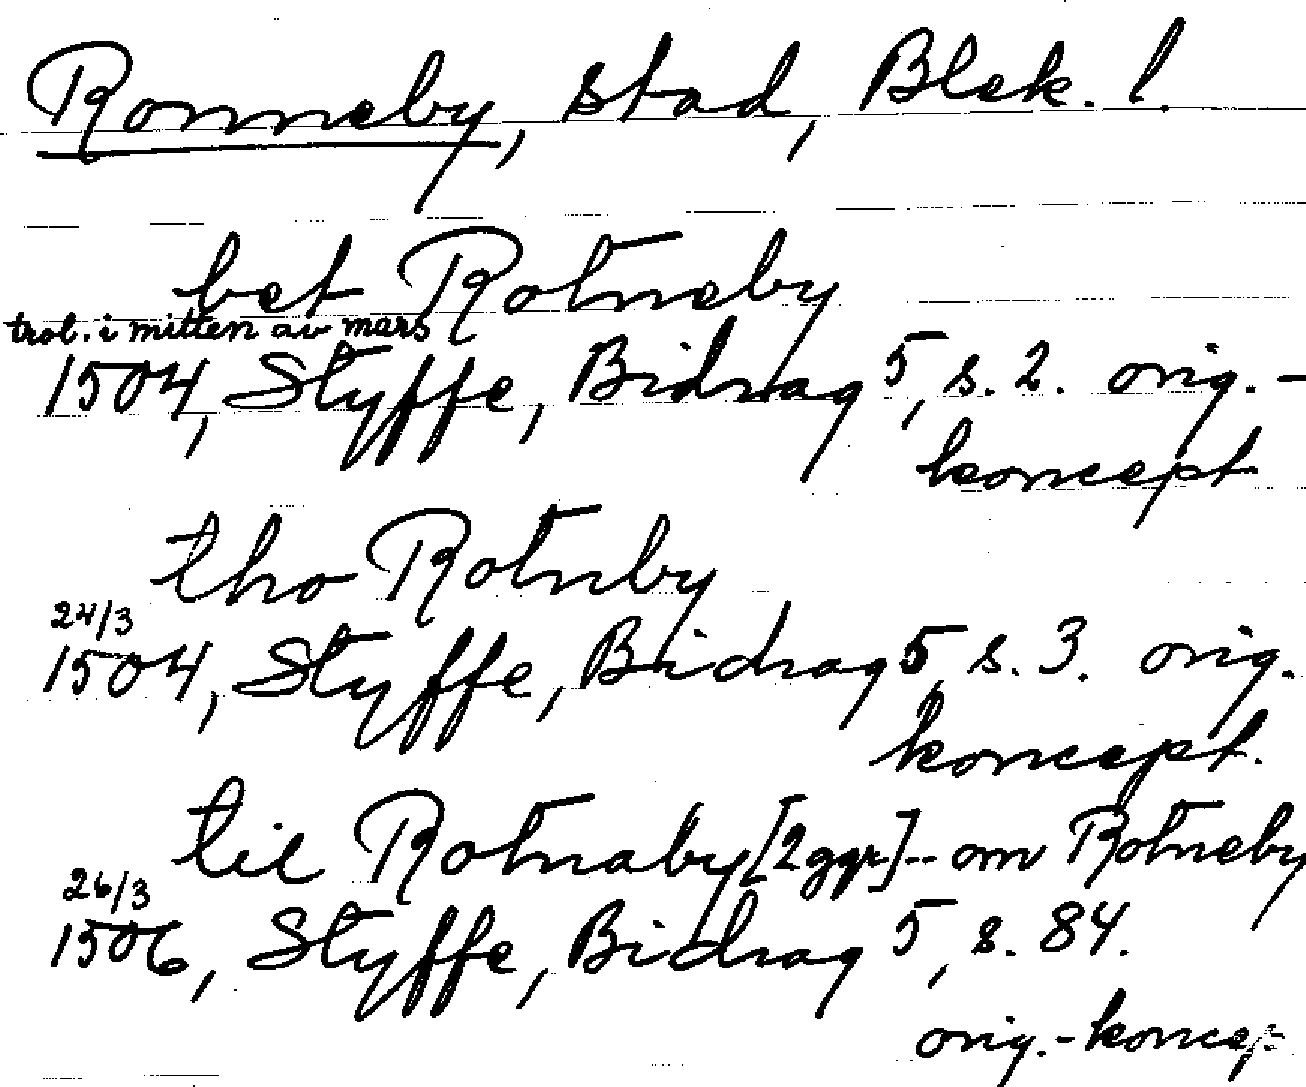 Ronneby, stad, Blek. l.
bet Rotneby
trol. i mitten av mars
1504, Styffe, Bidrag 5, s. 2. orig.-
koncept
tho Rotnby
24/3
1504, Styffe, Bidrag 5, s. 3. orig.
koncept.
til Rotnaby [2 ggr] -- om Rotneby
26/3
1506, Styffe, Bidrag 5, s. 84.
orig.-koncept